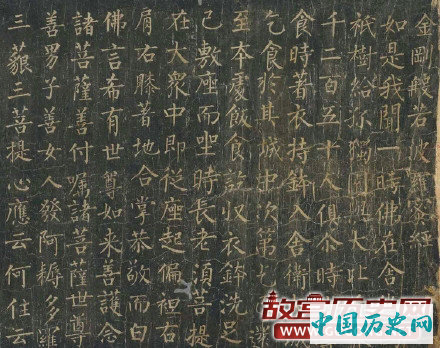 金剛般若波羅蜜經
如是我聞一時佛在舍
祇樹給孤獨園與大比
千二百五十人俱尒時
食時著衣持鉢入舍衛
乞食於其城中次第
至本處飯食訖収衣鉢洗足
已敷座而坐時長老須菩提
在大衆中即從座起偏袒右
肩右膝著地合掌恭敬而白
佛言希有世尊如来善護念
諸菩薩善付嘱諸菩薩世尊
善男子善女人發阿耨多羅
三藐三菩提心應云何住云
故宫历史网
中国历史网